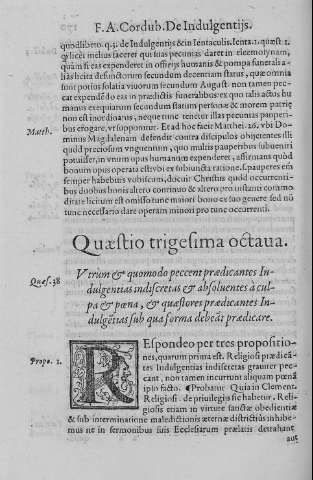 F. A. Cordub. De Indulgentijs.
quodlibeto. q. 3. de Indulgentijs & in Ientaculis. Ienta. 1. quæst. 2.
q licèt melius faceret qui suas pecunias daret in eleemosynam,
quàm si eas expenderet in offerijs humanis & pompa funerali a-
lias licita defunctorum secundum decentiam status, quæ omnia
sunt potius solatia viuorum secundum August. non tamen pec-
cat expendēdo eas in prædictis funeralibus ex quo talis actus hu-
manus exequiarum secundum statum personæ & morem patriæ
non est inordinatus, neque tunc tenetur illas pecunias pauperi-
bus erogare, vt supponitur. Et ad hoc facit Matthęi. 26. vbi Do-
Matth.
minus Magdalenam defendit contra discipulos obijcientes illi
quòd preciosum vnguentum, quo multis pauperibus subueniri
potuisset, in vnum opus humanum expenderet, affirmans quòd
bonum opus operata est vbi ex subiuncta ratione. s. pauperes eni
semper habebitis vobiscum, docuit Christus quòd occurrenti-
bus duobus bonis altero continuo & altero pro instanti commo-
ditate licitum est omisso tunc maiori bono ex suo genere sed nō
tunc necessario dare operam minori pro tunc occurrenti.
Quæstio trigesima octaua.
Quæs. 38
Vtrum & quomodo peccent prædicantes In-
dulgentias indiscretas & absoluentes à cul-
pa & pœna, & quæstores prædicantes In-
dulgētias sub qua forma debeāt prædicare.
Propo. 1.
REspondeo per tres propositio-
nes, quarum prima est. Religiosi prædicā-
tes Indulgentias indiscretas grauiter pec-
cant, non tamen incurrunt aliquam pœnā
ipso facto. ¶ Probatur. Quia in Clement.
Religiosi. de priuilegijs sic habetur. Reli-
giosis etiam in virtute sanctæ obedientiæ
& sub interminatione maledictionis æternæ districtiùs inhibe-
mus ne in sermonibus suis Ecclesiarum prælatis detrahant
aut